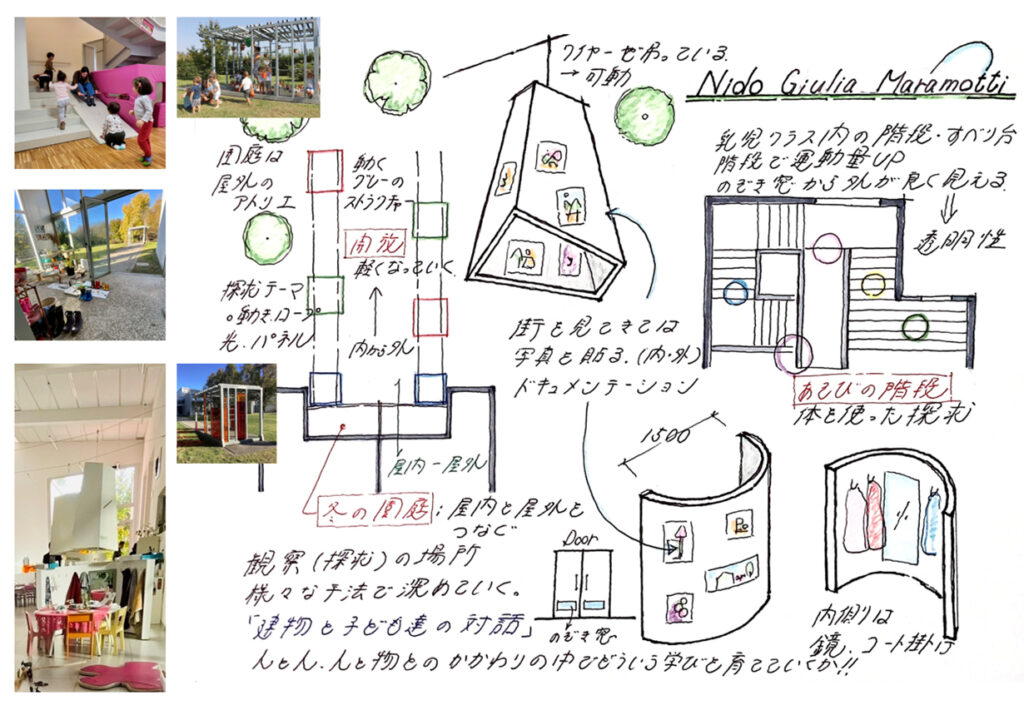 Nido Giulia Maramotti
ワイヤーで吊っている
→可動
乳児クラス内の階段・すべり台
階段で運動量UP
のぞき窓から外が良く見える
⇓
透明性
園庭は
屋外の
アトリエ
動く
グレーの
ストラクチャー
開放
軽くなっていく
探求テーマ
・動き.ロープ
光.パネル
内から外
屋内-屋外
街を見てきては
写真を貼る.(内・外)
ドキュメンテーション
あそびの階段
体を使った探求
1500
冬の園庭:屋内と屋外を
つなぐ
観察(探求)の場所
様々な手法で深めていく。
「建物と子ども達の対話」
人と人.人と物とのかかわりの中でどういう学びを育てていくか!!
Door
のぞき窓
内側は
鏡.コート掛け